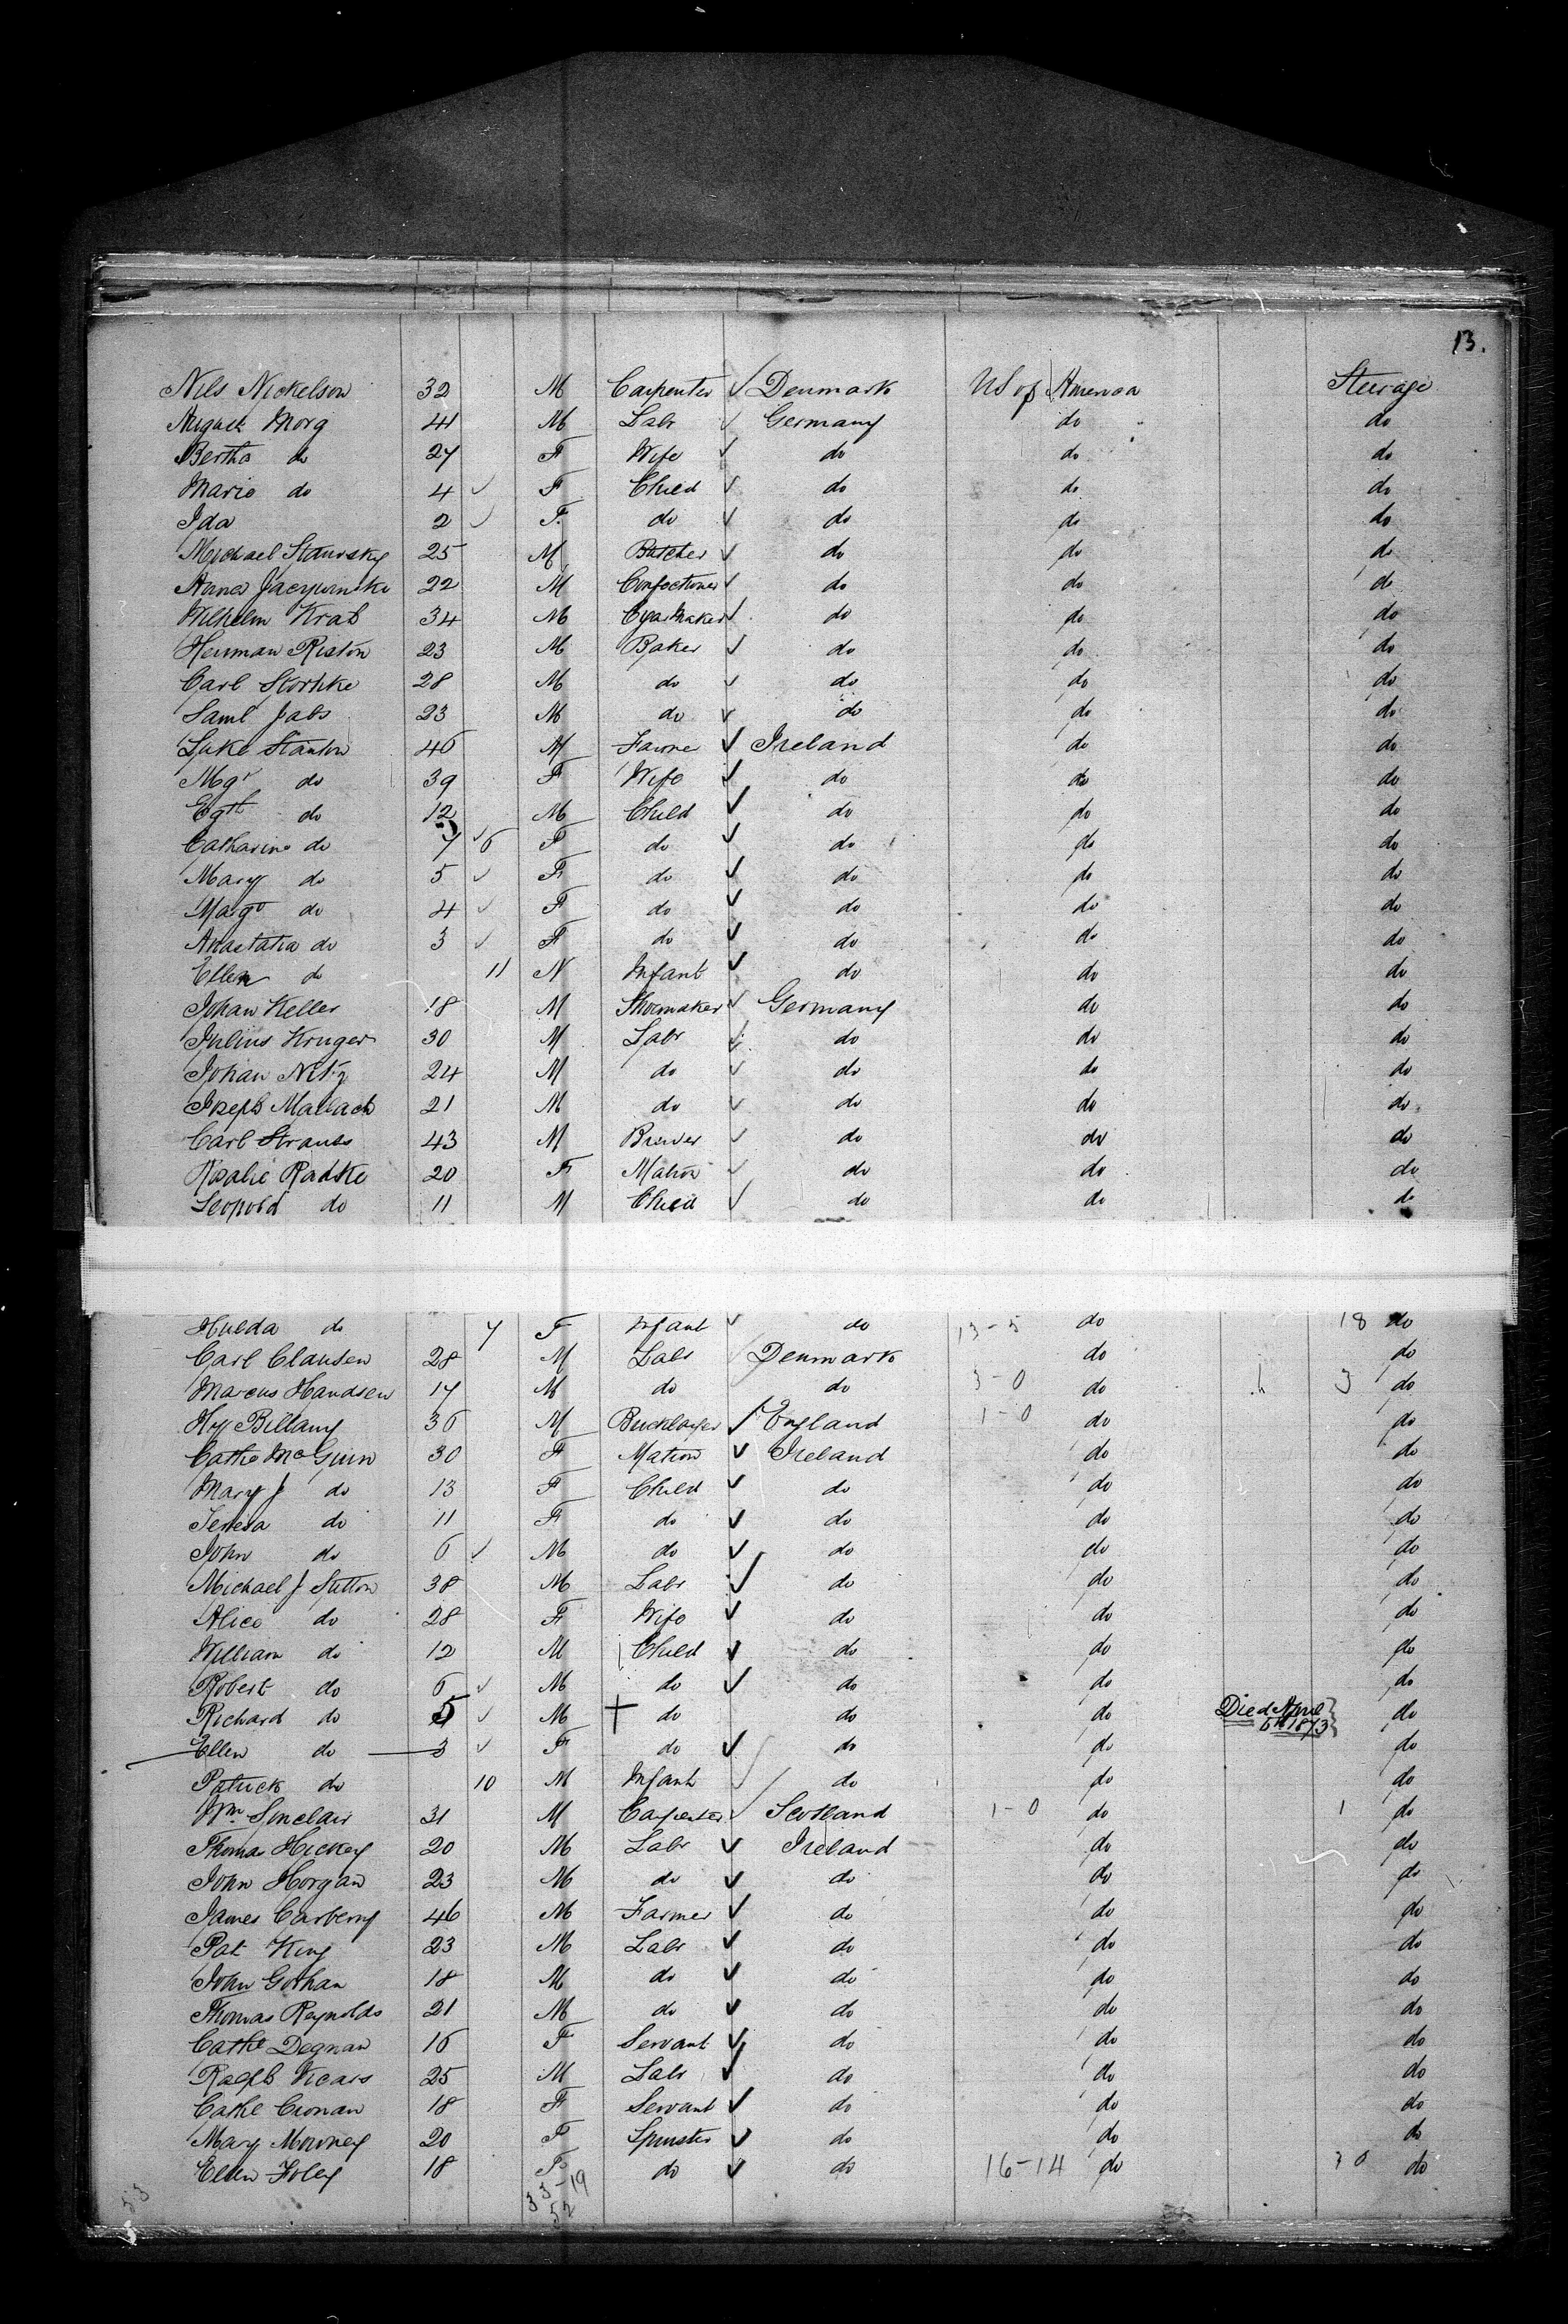 13.
Nils Nickelson 32 M Carpenter ✓ Denmark US of America Steerage
August Morg 41 M Labr ✓ Germany do do
Bertha do 27 F Wife ✓ do do do
Marie do 4 ✓ F Child ✓ do do do
Ida 2 ✓ F. do ✓ do do do
Michael 25 M Butcher ✓ do do do
22 M Confectioner ✓ do do do
Wilhelm Krab 34 M Cigar Maker ✓ do do do
Herman Riston 23 M Baker ✓ do do do
Carl 28 M do ✓ do do do
Saml Jabs 23 M do ✓ do do do
Luke Stanton 46 M ✓ Ireland do do
Mgt do 39 F Wife ✓ do do do
do 12 M Child ✓ do do do
Catharine do 7 ✓ 6 F do ✓ do do do
Mary do 5 ✓ F do ✓ do do do
Margt do 4 ✓ F do ✓ do do do
Anastatia do 3 ✓ F do ✓ do do do
Ellen do 11 Infant ✓ do do do
Johan Keller 18 M Shoemaker ✓ Germany do do
Julius Kruger 30 M Labr ✓ do do do
Johan Nitz 24 M do ✓ do do do
Joseph Mallach 21 M do ✓ do do do
Carl Strauss 43 M Brewer ✓ do do do
Rosalie Radske 20 F Matron ✓ do do do
Leopold do 11 M Child ✓ do do do
Hulda do 7 F Infant ✓ do 13-5 do 18 do
Carl Clausen 28 M Labr ✓ Denmark do do
Marcus Handsen 17 M do do 3-0 do 3 do
Hy Billamy 36 M Bricklayer ✓ England 1-0 do do
Cathe McGuin 30 F Matron ✓ Ireland do do
Mary J do 13 F Child ✓ do do do
Teresa do 11 F do ✓ do do do
John do 6 ✓ M do ✓ do do do
Michael J Sutton 38 M Labr ✓ do do do
Alice do 28 F Wife ✓ do do do
William do 12 M Child ✓ do do do
Robert do 6 ✓ M do ✓ do do do
Richard do 5 ✓ M † do do do Died April 5th 1873 do
Ellen do 3 ✓ F do ✓ do do do
Patrick do 10 M Infant ✓ do do do
Wm. Sinclair 31 M Carpenter ✓ Scotland 1-0 do 1 do
Thomas Hickey 20 M Labr ✓ Ireland do do
John Horgan 23 M do ✓ do do do
James Carberry 46 M Farmer ✓ do do do
Pat King 23 M Labr ✓ do do do
John Gothan 18 M do ✓ do do do
Thomas Reynolds 21 M do ✓ do do do
Cathe Degnan 16 F Servant ✓ do do do
Ralph Vicars 25 M Labr ✓ do do do
Cathe Cronan 18 F Servant ✓ do do do
Mary Mowney 20 F Spinster ✓ do do do
Ellen Foley 18 F do ✓ do 16-14 do 30 do
33-19
53 52